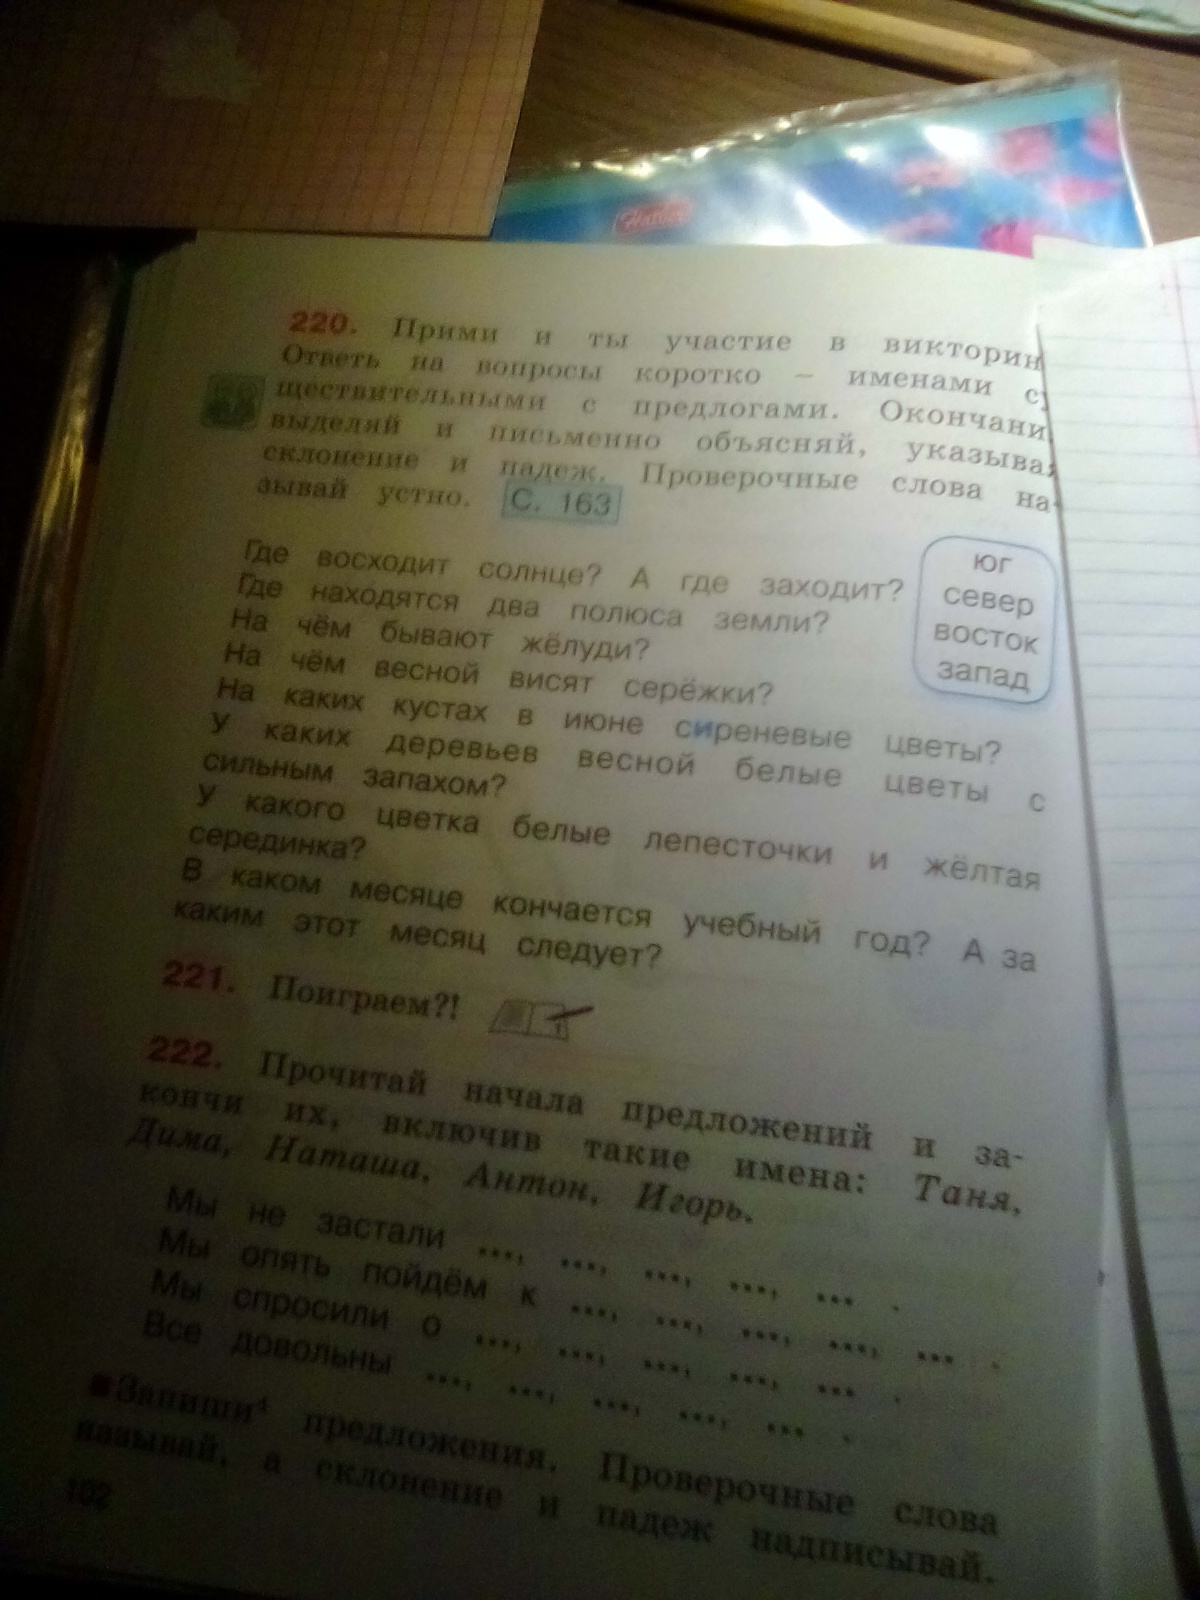 Hatber
220. Прими и ты участие в викторин
Ответь на вопросы коротко – именами су
ществительными с предлогами. Окончани
выделяй и письменно объясняй, указывая
склонение и падеж. Проверочные слова на-
зывай устно. С. 163
Где восходит солнце? А где заходит?
Где находятся два полюса земли?
На чём бывают жёлуди?
На чём весной висят серёжки?
На каких кустах в июне сиреневые цветы?
У каких деревьев весной белые цветы с
сильным запахом?
У какого цветка белые лепесточки и жёлтая
серединка?
В каком месяце кончается учебный год? А за
каким этот месяц следует?
юг
север
восток
запад
221. Поиграем?!
222. Прочитай начала предложений и за-
кончи их, включив такие имена: Таня,
Дима, Наташа, Антон, Игорь.
Мы не застали ..., ..., ..., ..., ... .
Мы опять пойдём к ..., ..., ..., ..., ... .
Мы спросили о ..., ..., ..., ..., ... .
Все довольны ..., ..., ..., ..., ... .
Запиши⁴ предложения. Проверочные слова
называй, а склонение и падеж надписывай.
102